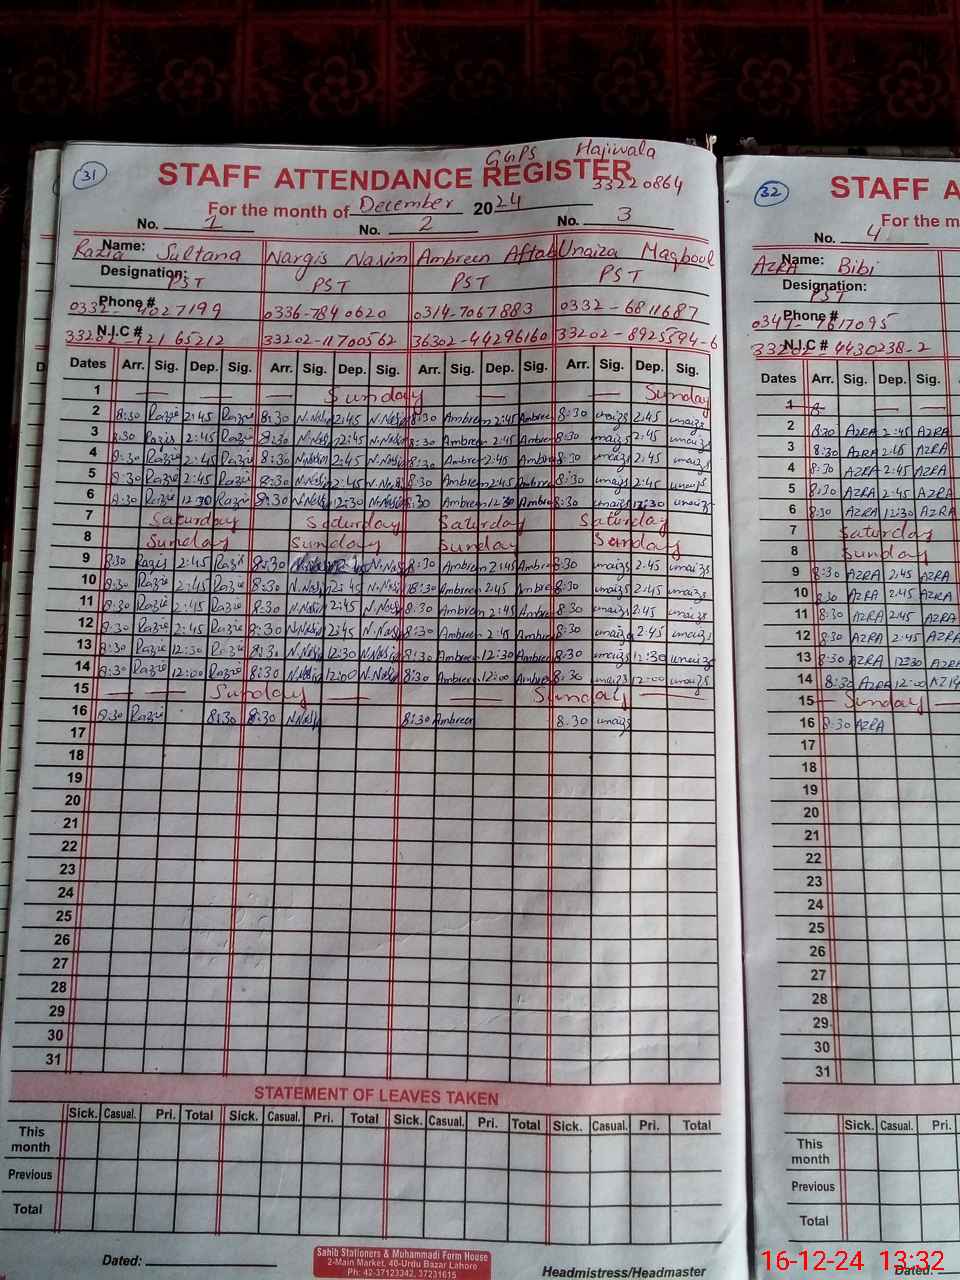 GGPS Hajiwala
31 STAFF ATTENDANCE REGISTER
33220864
For the month of December 2024
No. 1 No. 2 No. 3
Name: Razia Sultana Nargis Nasim Ambreen Aftab Unaiza Maqbool
Designation: PST PST PST PST
Phone # 0332-4027199 0336-7840620 0314-7067883 0332-6811687
N.I.C # 33202-11700562 36302-44296160 33202-8925594-6
Dates Arr. Sig. Dep. Sig. Arr. Sig. Dep. Sig. Arr. Sig. Dep. Sig. Arr. Sig. Dep. Sig.
1 Sunday Sunday
2 8:30 Razia 2:45 Razia 8:30 N.Nasim 2:45 N.Nasim 8:30 Ambreen 2:45 Ambreen 8:30 unaiza 2:45 unaiza
3 8:30 Razia 2:45 Razia 8:30 N.Nasim 2:45 N.Nasim 8:30 Ambreen 2:45 Ambreen 8:30 unaiza 2:45 unaiza
4 8:30 Razia 2:45 Razia 8:30 N.Nasim 2:45 N.Nasim 8:30 Ambreen 2:45 Ambreen 8:30 unaiza 2:45 unaiza
5 8:30 Razia 2:45 Razia 8:30 N.Nasim 2:45 N.Nasim 8:30 Ambreen 2:45 Ambreen 8:30 unaiza 2:45 unaiza
6 8:30 Razia 12:30 Razia 8:30 N.Nasim 12:30 N.Nasim 8:30 Ambreen 12:30 Ambreen 8:30 unaiza 12:30 unaiza
7 Saturday Saturday Saturday Saturday
8 Sunday Sunday Sunday Sunday
9 8:30 Razia 2:45 Razia 8:30 N.Nasim 8:30 Ambreen 2:45 Ambreen 8:30 unaiza 2:45 unaiza
10 8:30 Razia 2:45 Razia 8:30 N.Nasim 2:45 N.Nasim 8:30 Ambreen 2:45 Ambreen 8:30 unaiza 2:45 unaiza
11 8:30 Razia 2:45 Razia 8:30 N.Nasim 2:45 N.Nasim 8:30 Ambreen 2:45 Ambreen 8:30 unaiza 2:45 unaiza
12 8:30 Razia 2:45 Razia 8:30 N.Nasim 2:45 N.Nasim 8:30 Ambreen 2:45 Ambreen 8:30 unaiza 2:45 unaiza
13 8:30 Razia 12:30 Razia 8:30 N.Nasim 12:30 N.Nasim 8:30 Ambreen 12:30 Ambreen 8:30 unaiza 12:30 unaiza
14 8:30 Razia 12:00 Razia 8:30 N.Nasim 12:00 N.Nasim 8:30 Ambreen 12:00 Ambreen 8:30 unaiza 12:00 unaiza
15 Sunday Sunday
16 8:30 Razia 8:30 8:30 N.Nasim 8:30 Ambreen 8.30 unaiza
17
18
19
20
21
22
23
24
25
26
27
28
29
30
31
STATEMENT OF LEAVES TAKEN
Sick. Casual. Pri. Total Sick. Casual. Pri. Total Sick. Casual. Pri. Total Sick. Casual. Pri. Total
This month
Previous
Total
Dated:
Sahib Stationers & Muhammadi Form House
2-Main Market, 40-Urdu Bazar Lahore
Ph: 42-37123342, 37231615
Headmistress/Headmaster
32 STAFF A
For the m
No. 4
Name: AZRA Bibi
Designation: PST
Phone # 0347-7617095
N.I.C # 33202 4430238-2
Dates Arr. Sig. Dep. Sig.
1
2 8:30 AZRA 2:45 AZRA
3 8:30 AZRA 2:45 AZRA
4 8:30 AZRA 2:45 AZRA
5 8:30 AZRA 2:45 AZRA
6 8:30 AZRA 12:30 AZRA
7 Saturday
8 Sunday
9 8:30 AZRA 2:45 AZRA
10 8:30 AZRA 2:45 AZRA
11 8:30 AZRA 2:45 AZRA
12 8:30 AZRA 2:45 AZRA
13 8:30 AZRA 12:30 AZRA
14 8:30 AZRA 12:00 AZRA
15 Sunday
16 8:30 AZRA
17
18
19
20
21
22
23
24
25
26
27
28
29
30
31
Sick. Casual. Pri.
This month
Previous
Total
Dated:
16-12-24 13:32